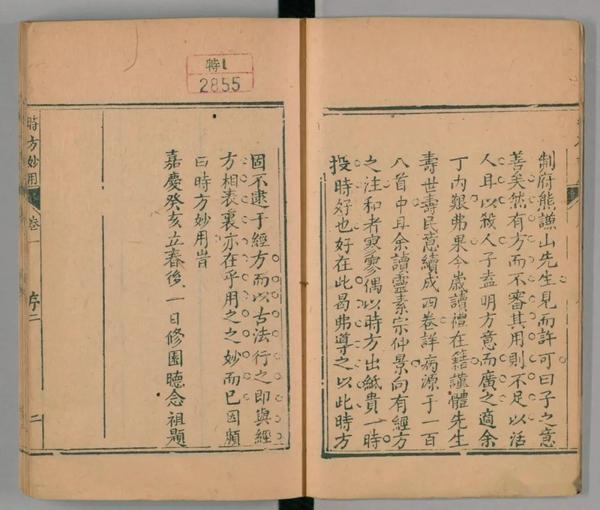 制府熊謙山先生見而許可曰子之意
善矣然有方而不審其用則不足以活
人耳以殺人子盍明方意而廣之適余
丁內艱弗果今歲讀禮在籍謹體先生
壽世壽民意續成四卷詳病源于一百
八首中且余讀靈素宗仲景向有經方
之注和者寥寥偶以時方出紙貴一時
投時好也好在此曷弗導之以此時方
特1
2855
固不逮于經方而以古法行之即與經
方相表裏亦在乎用之之妙而已因顏
曰時方妙用旹
嘉慶癸亥立春後一日修園陳念祖題
時方妙用
卷一
序二
二